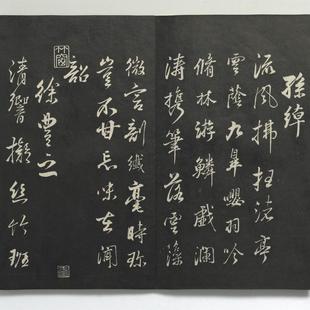 孫綽
流風拂枉渚亭
雲蔭九皐嚶羽吟
脩林游鱗戲瀾
濤携筆落雲藻
微言剖纖毫時珍
豈不甘忘味在聞
韶
徐豐之
清響擬絲竹班